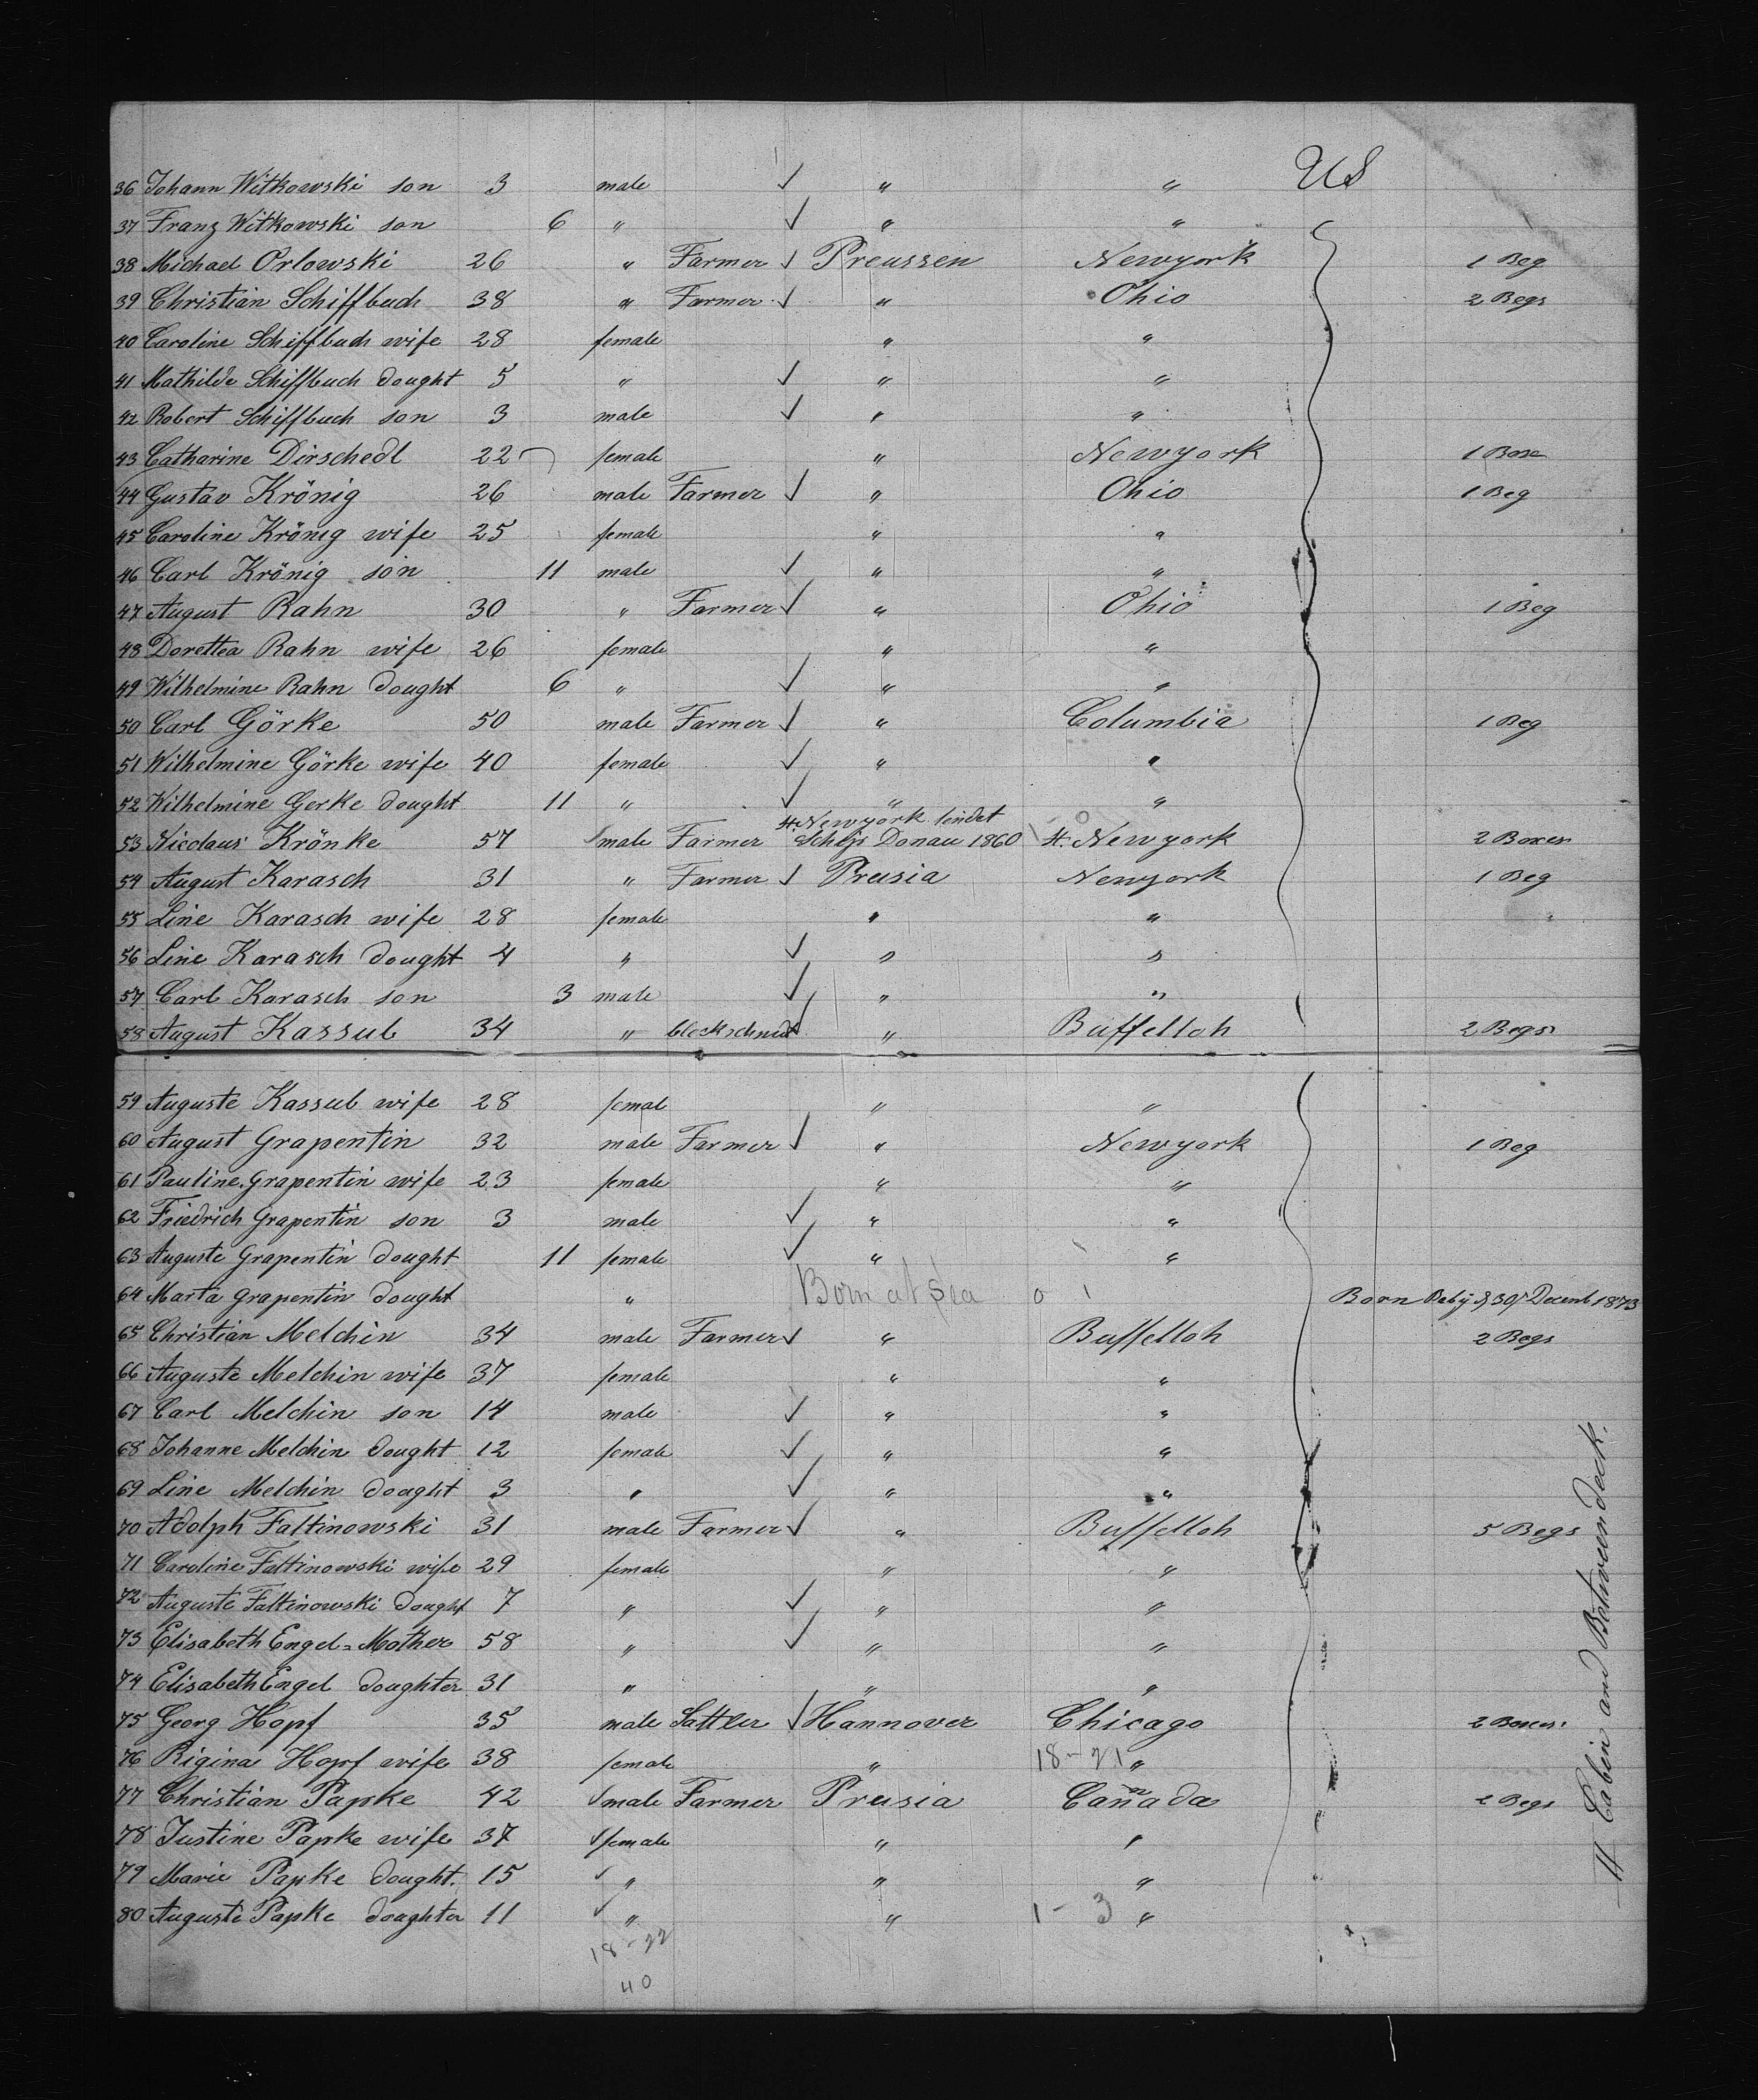 US
36 Johann Witkowski son 3 male ✓ " "
37 Franz Witkowski son 6 " ✓ " "
38 Michael Orlowski 26 " Farmer ✓ Preussen Newyork 1 Beg
39 Christian Schiffbuch 38 " Farmer ✓ " Ohio 2 Begs
40 Caroline Schiffbuch wife 28 female " "
41 Mathilde Schiffbuch dought 5 " ✓ " "
42 Robert Schiffbuch son 3 male ✓ " "
43 Catharine Dirschedl 22 female " Newyork 1 Box
44 Gustav Krönig 26 male Farmer ✓ " Ohio 1 Beg
45 Caroline Krönig wife 25 female " "
46 Carl Krönig son 11 male ✓ " "
47 August Rahn 30 " Farmer ✓ " Ohio 1 Beg
48 Dorettea Rahn wife 26 female " "
49 Wilhelmine Rahn dought 6 " ✓ " "
50 Carl Görke 50 male Farmer ✓ " Columbia 1 Beg
51 Wilhelmine Görke wife 40 female ✓ " "
52 Wilhelmine Gerke dought 11 " ✓ " "
Newyork
53 Nicolaus Krönke 57 male Farmer Donau 1860 Newyork 2 Boxes
54 August Karasch 31 " Farmer ✓ Prusia Newyork 1 Beg
55 Line Karasch wife 28 female " "
56 Line Karasch dought 4 " ✓ " "
57 Carl Karasch son 3 male ✓ " "
58 August Kassub 34 " ✓ " Buffelloh 2 Begs
59 Auguste Kassub wife 28 femal " "
60 August Grapentin 32 male Farmer ✓ " Newyork 1 Beg
61 Pauline Grapentin wife 23 female " "
62 Friedrich Grapentin son 3 male ✓ " "
63 Auguste Grapentin dought 11 female ✓ " "
64 Marta Grapentin dought " Born at Sea 0 1 Born 30 Decemb 1873
65 Christian Melchin 34 male Farmer ✓ " Buffelloh 2 Begs
66 Auguste Melchin wife 37 female " "
67 Carl Melchin son 14 male ✓ " "
68 Johanne Melchin dought 12 female ✓ " "
69 Line Melchin dought 3 " ✓ " "
70 Adolph Faltinowski 31 male Farmer ✓ " Buffelloh 5 Begs
71 Caroline Faltinowski wife 29 female " "
72 Auguste Faltinowski dought 7 " ✓ " "
73 Elisabeth Engel = Mother 58 " ✓ " "
74 Elisabeth Engel doughter 31 " " "
75 Georg Hopf 35 male Sattler ✓ Hannover Chicago 2 Boxes
76 Rigina Hopf wife 38 female " 18-21 "
77 Christian Papke 42 ✓ male Farmer Prusia Canada 2 Begs
78 Justine Papke wife 37 ✓ female " "
79 Marie Papke dought. 15 ✓ " " "
80 Auguste Papke doughter 11 ✓ " " 1-3 "
18-22
40
H Cabin and Betweendeck.